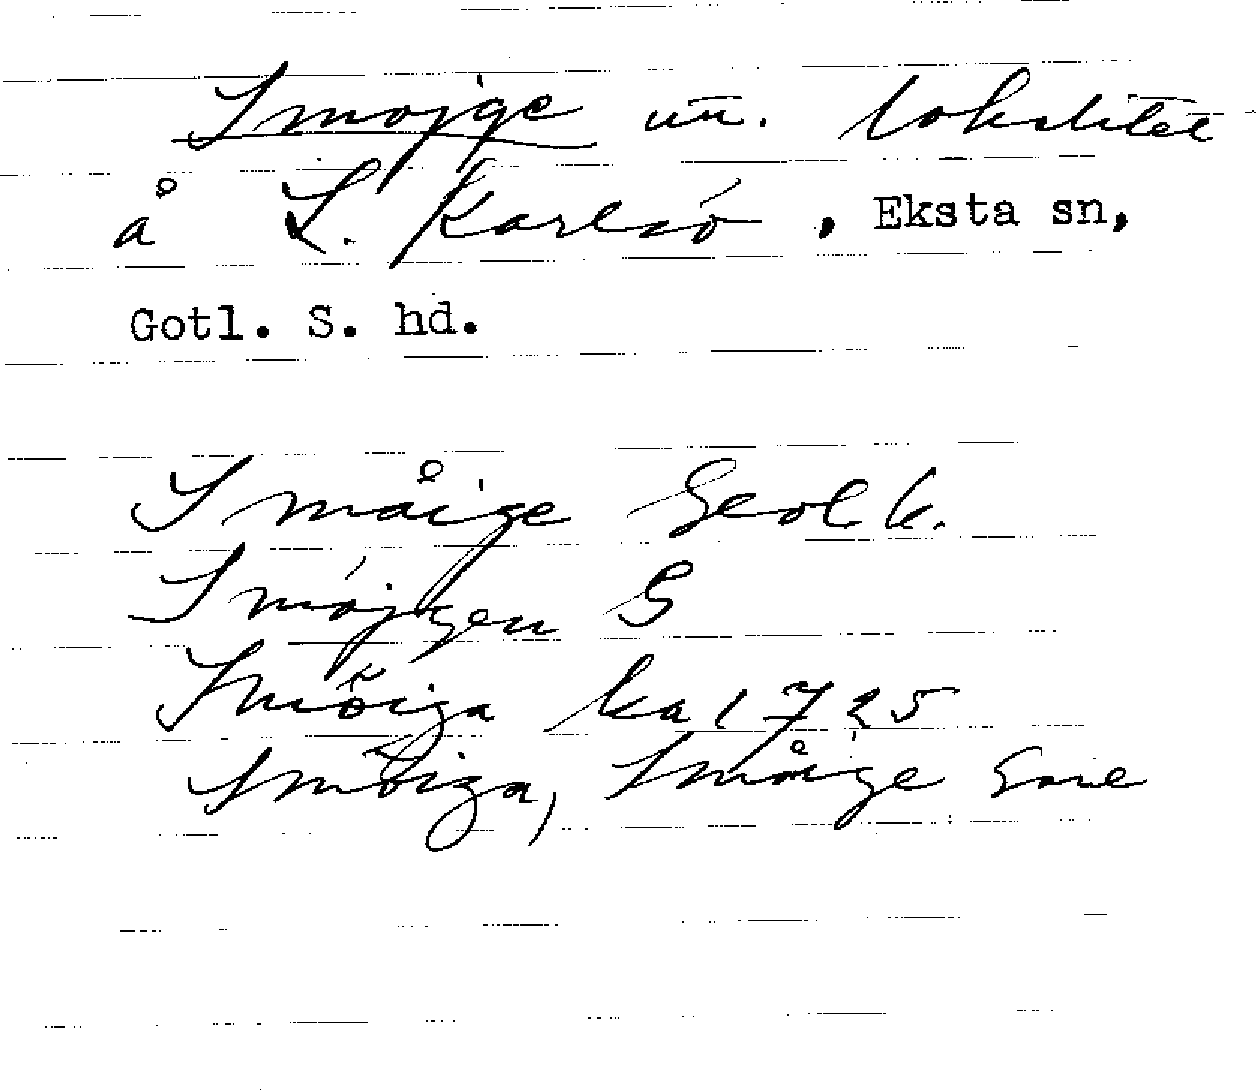 Smojge un. lokalitet
å L. Karlsö, Eksta sn,
Gotl. S. hd.
Småige Geol k.
Smöjgen G
Smöiga ka 1725
Smöiga, Småige